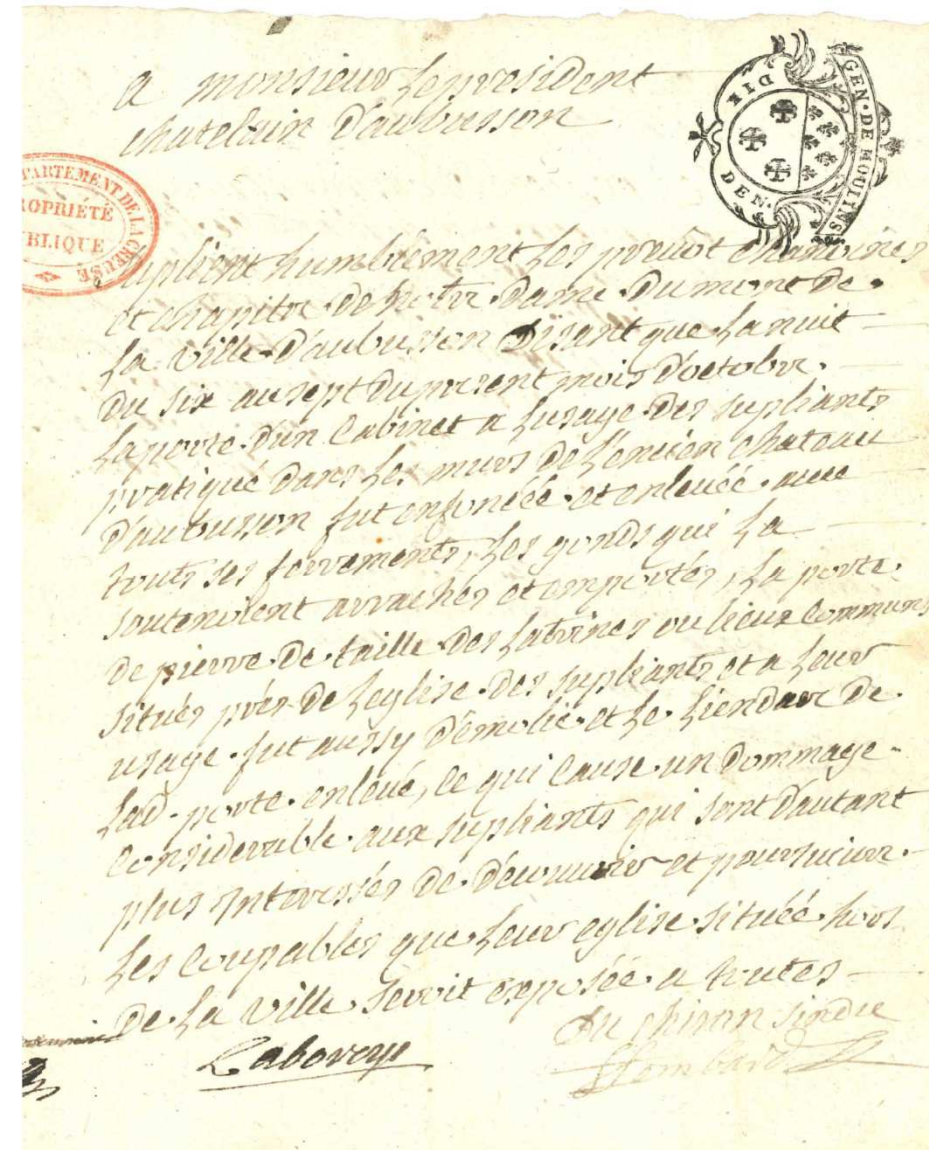 a monsieur le president
chatelain d'aubusson
GEN · DE MOULINS
DIX
DEN ·
DEPARTEMENT DE LA CREUSE
PROPRIÉTÉ
PUBLIQUE
suplient humblement les prevot chanoines
et chapitre de notre dame du mont de
la ville d'aubusson disant que la nuit
du six au sept du present mois d'octobre
la porte d'un cabinet a lusage des supliants
pratiqué dans les murs de l'ancien chateau
d'aubusson fut enfoncéé et enlevéé avec
touts ses ferrements, les gonds qui la
soutenoient arrachés et emportés, la porte
de pierre de taille des latrines ou lieux communs
situés prés de leglise des supliants et a leur
usage fut aussy démolie et le
lad. porte enlevé, ce qui cause un dommage
considerable aux supliants qui sont d'autant
plus interessés de découvrir et poursuivre
les coupables que leur eglise situéé hors
de la ville seroit exposéé a toutes
du chiron sindic
Laboreys